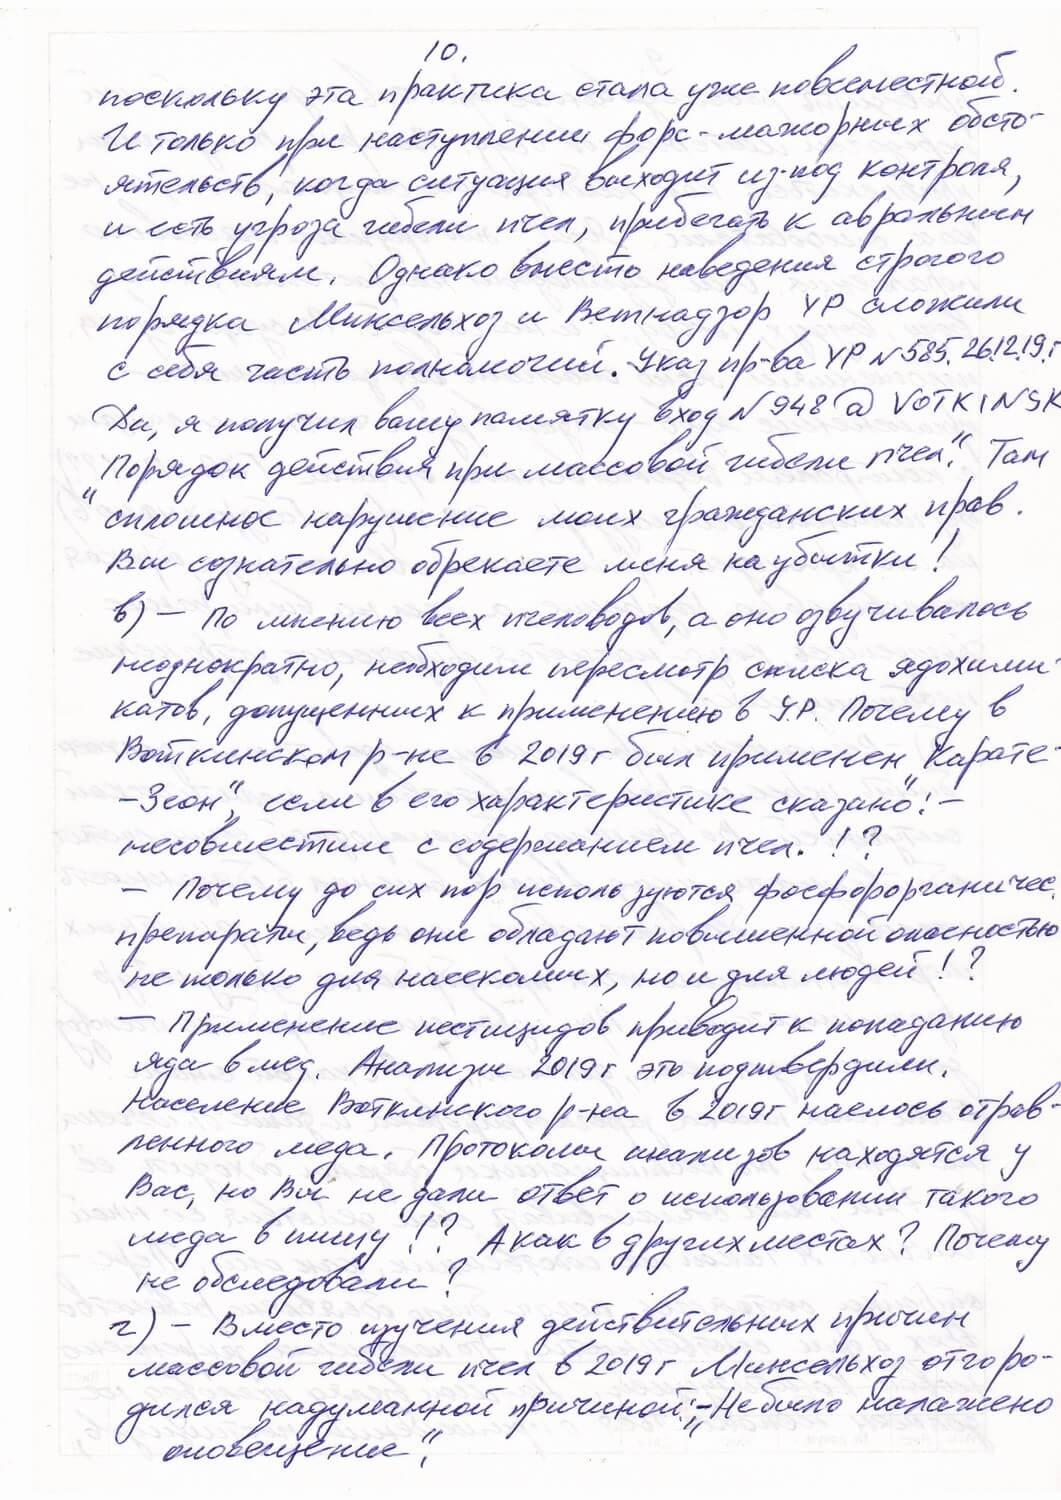 10.
поскольку эта практика стала уже повсеместной.
И только при наступлении форс-мажорных обсто-
ятельств, когда ситуация выходит из-под контроля,
и есть угроза гибели пчел, прибегать к авральным
действиям. Однако вместо наведения строгого
порядка Минсельхоз и Ветнадзор УР сложили
с себя часть полномочий. Указ пр-ва УР №585. 26.12.19.г
Да, я получил вашу памятку вход №948 @ VOTKINSK
"Порядок действия при массовой гибели пчел". Там
сплошное нарушение моих гражданских прав.
Вы сознательно обрекаете меня на убытки!
в) – По мнению всех пчеловодов, а оно озвучивалось
неоднократно, необходим пересмотр списка ядохими-
катов, допущенных к применению в У.Р. Почему в
Воткинском р-не в 2019г был применен "Карате-
-Зеон", если в его характеристике сказано": –
несовместим с содержанием пчел. !?
– Почему до сих пор используются фосфорорганичес.
препараты, ведь они обладают повышенной опасностью
не только для насекомых, но и для людей!?
– Применение пестицидов приводит к попаданию
яда в мед. Анализы 2019г это подтвердили.
Население Воткинского р-на в 2019г наелось отрав-
ленного меда. Протоколы анализов находятся у
Вас, но Вы не дали ответ о использовании такого
меда в пищу!? А как в других местах? Почему
не обследовали?
г) – Вместо изучения действительных причин
массовой гибели пчел в 2019г Минсельхоз отгоро-
дился надуманной причиной: – "Не было налажено
оповещение".